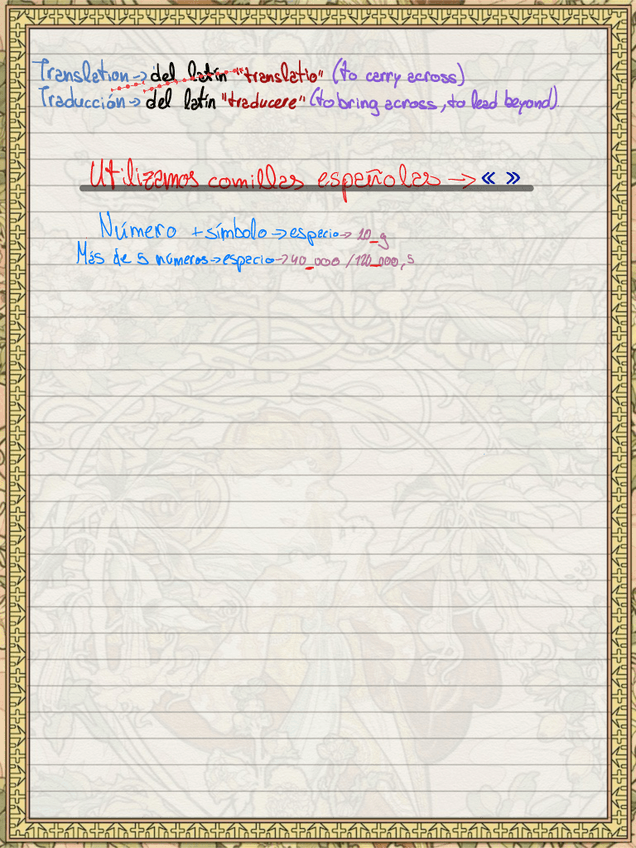 Translation → del latín "translatio" (to carry across)
Traducción → del latín "traducere" (to bring across, to lead beyond)
Utilizamos comillas españolas → « »
Número + símbolo → espacio → 10_g
Más de 5 números → espacio → 40_000 / 120_000,5